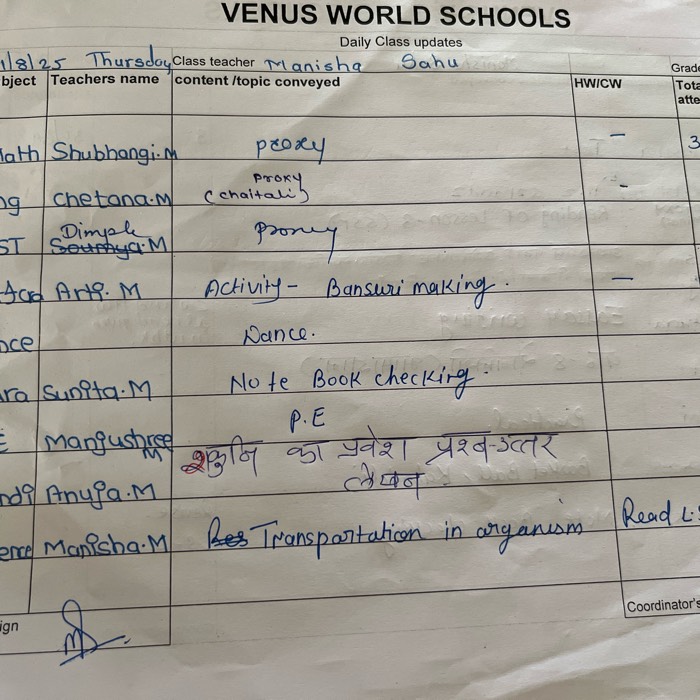 VENUS WORLD SCHOOLS
Daily Class updates
1/8/25 Thursday Class teacher Manisha Sahu Grade
bject Teachers name content /topic conveyed HW/CW Tota
atte
ath Shubhangi.M proxy - 3
ng Chetana.M proxy -
(chaitali)
ST Dimple proxy
Soumya.M
Arti. M Activity - Bansuri making. -
nce Dance.
ra Sunita.M Note Book checking.
E Manjushree P.E
M
ndi Anuja.M शकुनि का प्रवेश प्रश्न-उत्तर
लेखन
ence Manisha.M Res Transportation in organism Read L.
ign Coordinator's